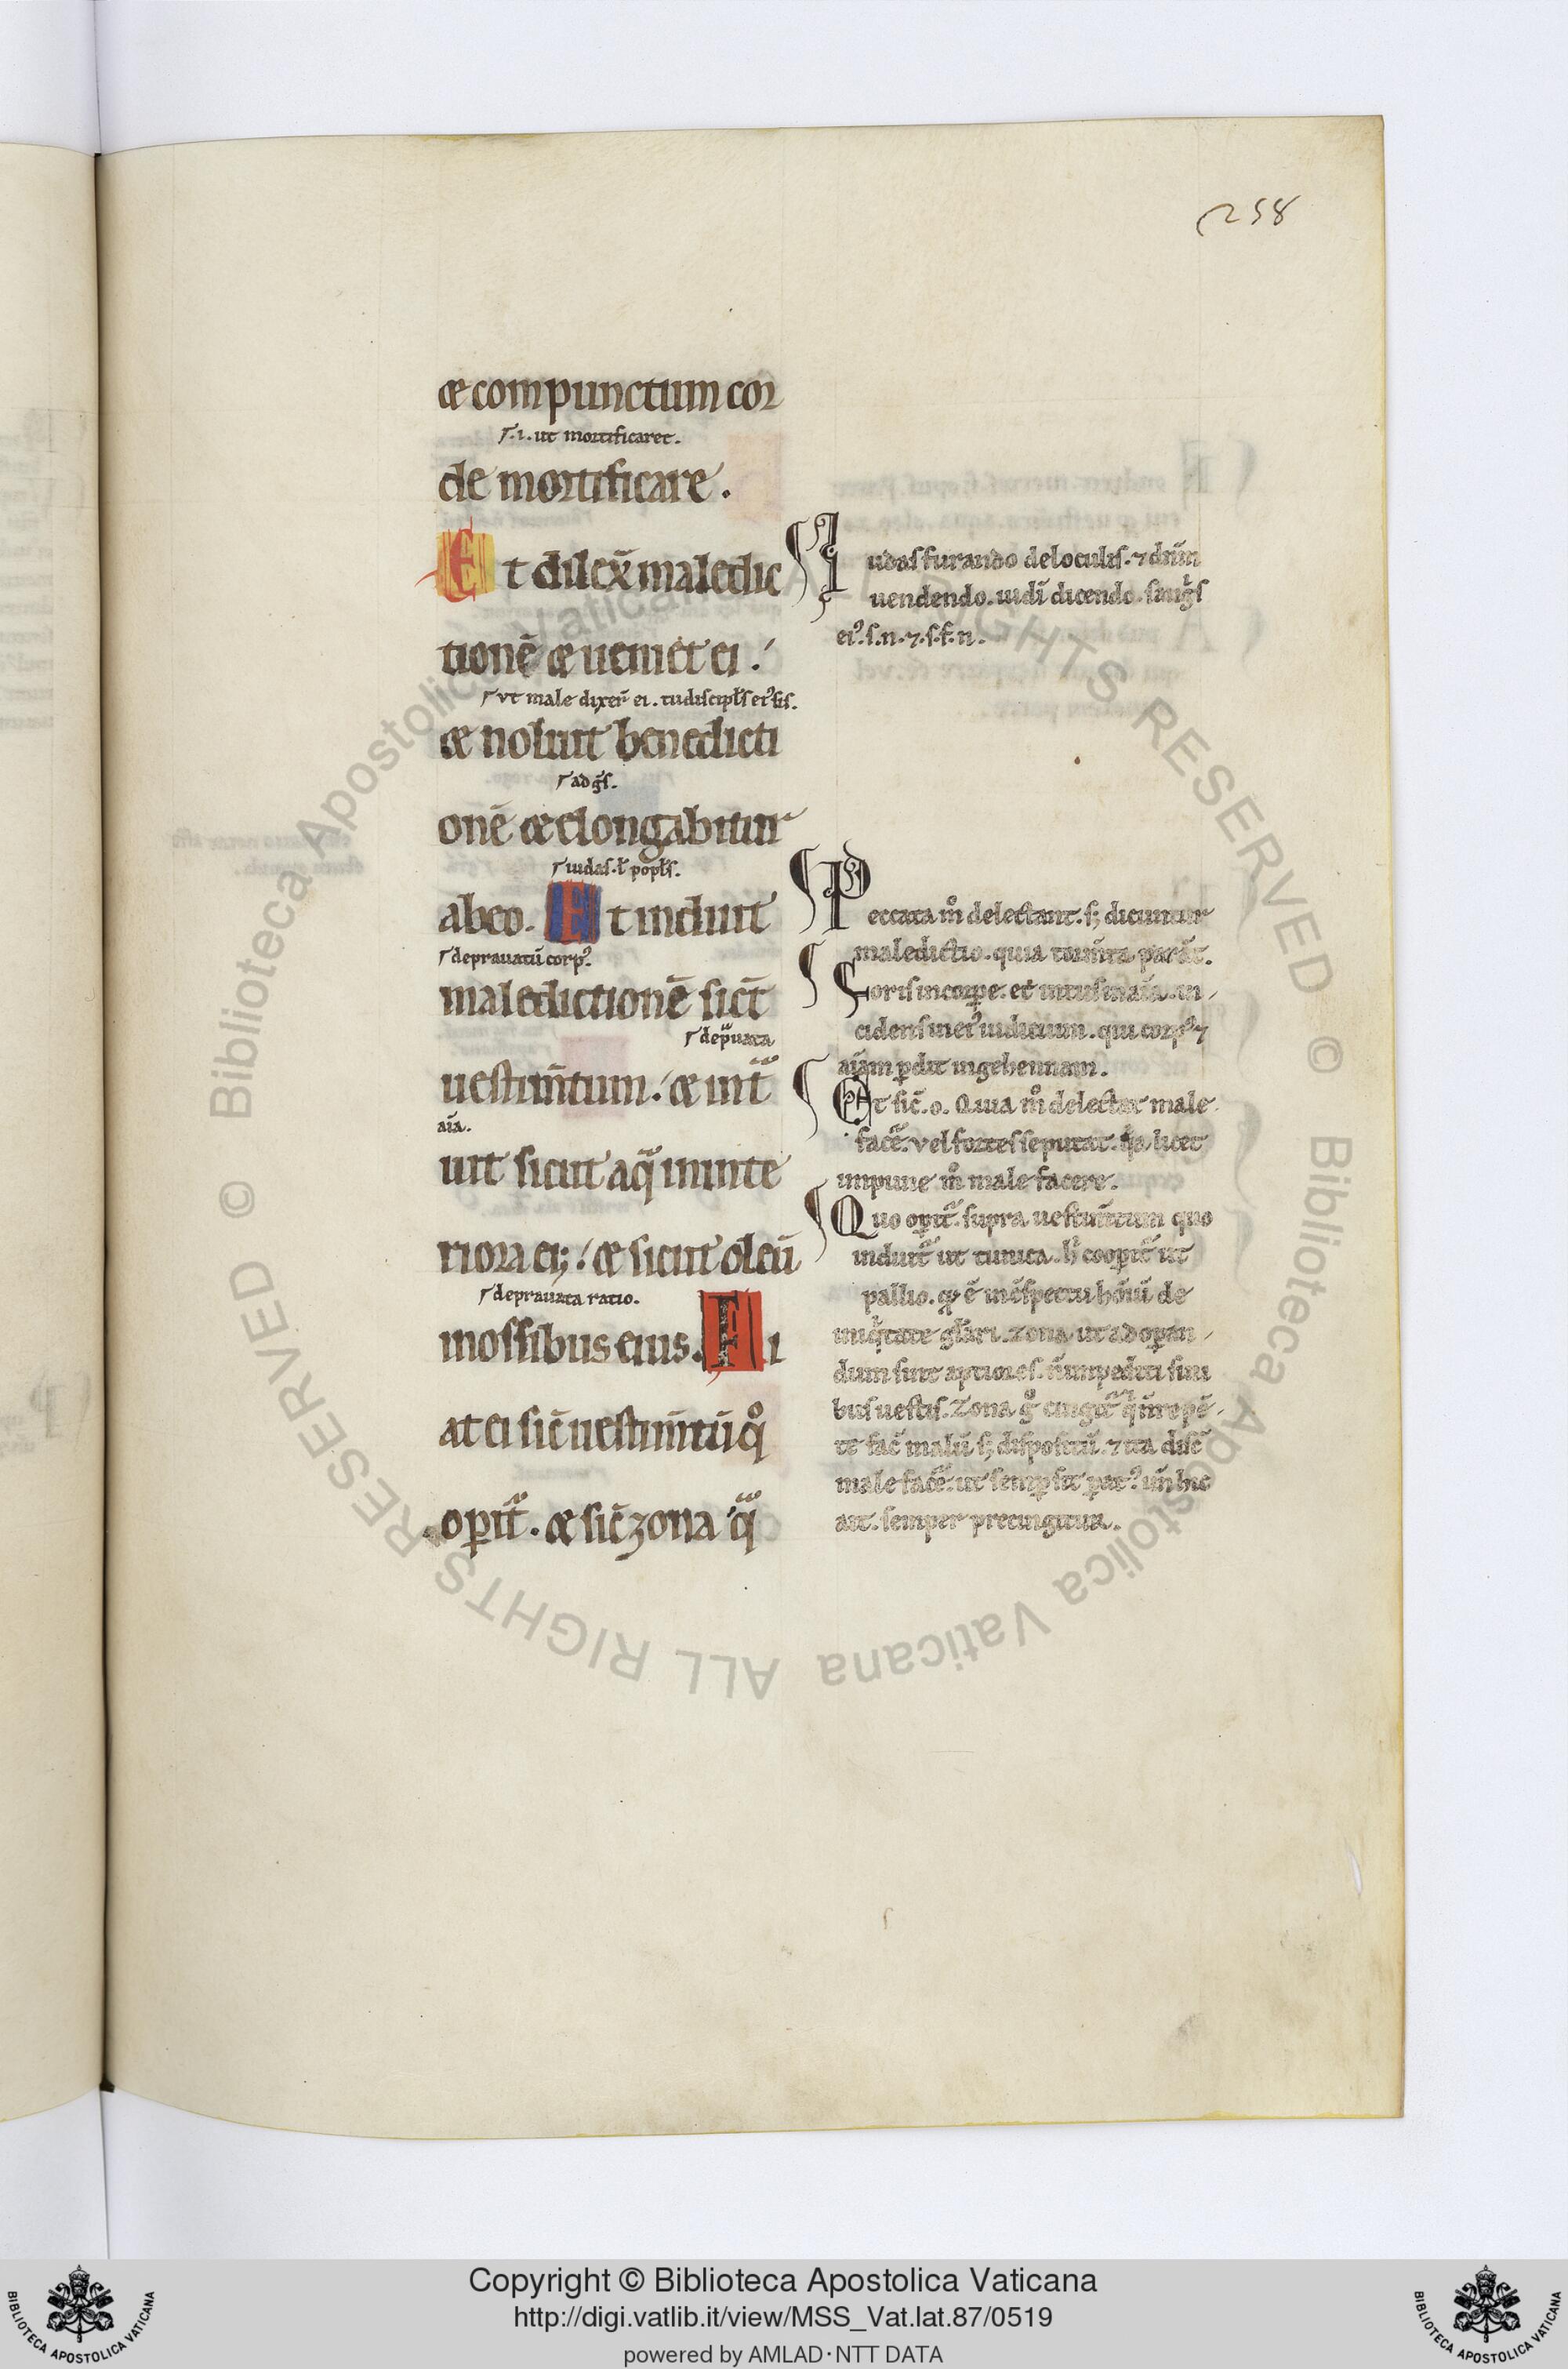 258
⁊ compunctum cor
.i. ut mortificaret.
de mortificare.
Et dilex̄ maledic
tionē ⁊ ueniet ei.
vt male dixer̄ ei. tu discipl̄s ei᾽ sis.
⁊ noluit benedicti
ad gͥs.
onē ⁊ elongabitur
iudas. ł popl̄s.
ab eo. Et induit
deprauatū corp᾽.
maledictionē sic̄t
dep̄uata
uestim̄tum. ⁊ int̄
aīa.
uit sicut aq̄ in inte
riora ei; ⁊ sicut oleū
deprauata ratio.
in ossibus eius. Fi
at ei sic̄ uestim̄tū qͦ
operit̄. ⁊ sic̄ zona q̄
Iudas furando de loculis. ⁊ dn̄m
uendendo. iudī dicendo. sangͥs
ei᾽. s. n. ⁊. s. f. n.
Peccata mͦ delectant. s; dicuntur
maledictio. quia
Foris in corpe. et intus in aīa. in
cidens in ei᾽ iudicium. qui corp᾽ ⁊
aīam pdit in gehennam.
Et sic̄. o. Quia mͦ delectat male
facē. vel fortes se putat. licet
impune mͦ male facere.
Quo operit̄. supra uestim̄tum quo
induit̄ ut tunica. coopit̄ ut
pallio. ē in cōspectu hōiū de
iniqͥtate gl̄ari. Zona ut ad operan
dum sunt aptiores. n̄ impediti sinu
bus uestis. Zona gͦ cingit̄ repē
te fac̄ malū s; dispositū. ⁊ ita disc̄
male facē. ut semp sit parat᾽. uñ hic
ait. semper precingitur.
Copyright © Biblioteca Apostolica Vaticana
http://digi.vatlib.it/view/MSS_Vat.lat.87/0519
powered by AMLAD·NTT DATA
© Biblioteca Apostolica Vaticana ALL RIGHTS RESERVED
© Biblioteca Apostolica Vaticana ALL RIGHTS RESERVED
BIBLIOTECA APOSTOLICA VATICANA
BIBLIOTECA APOSTOLICA VATICANA